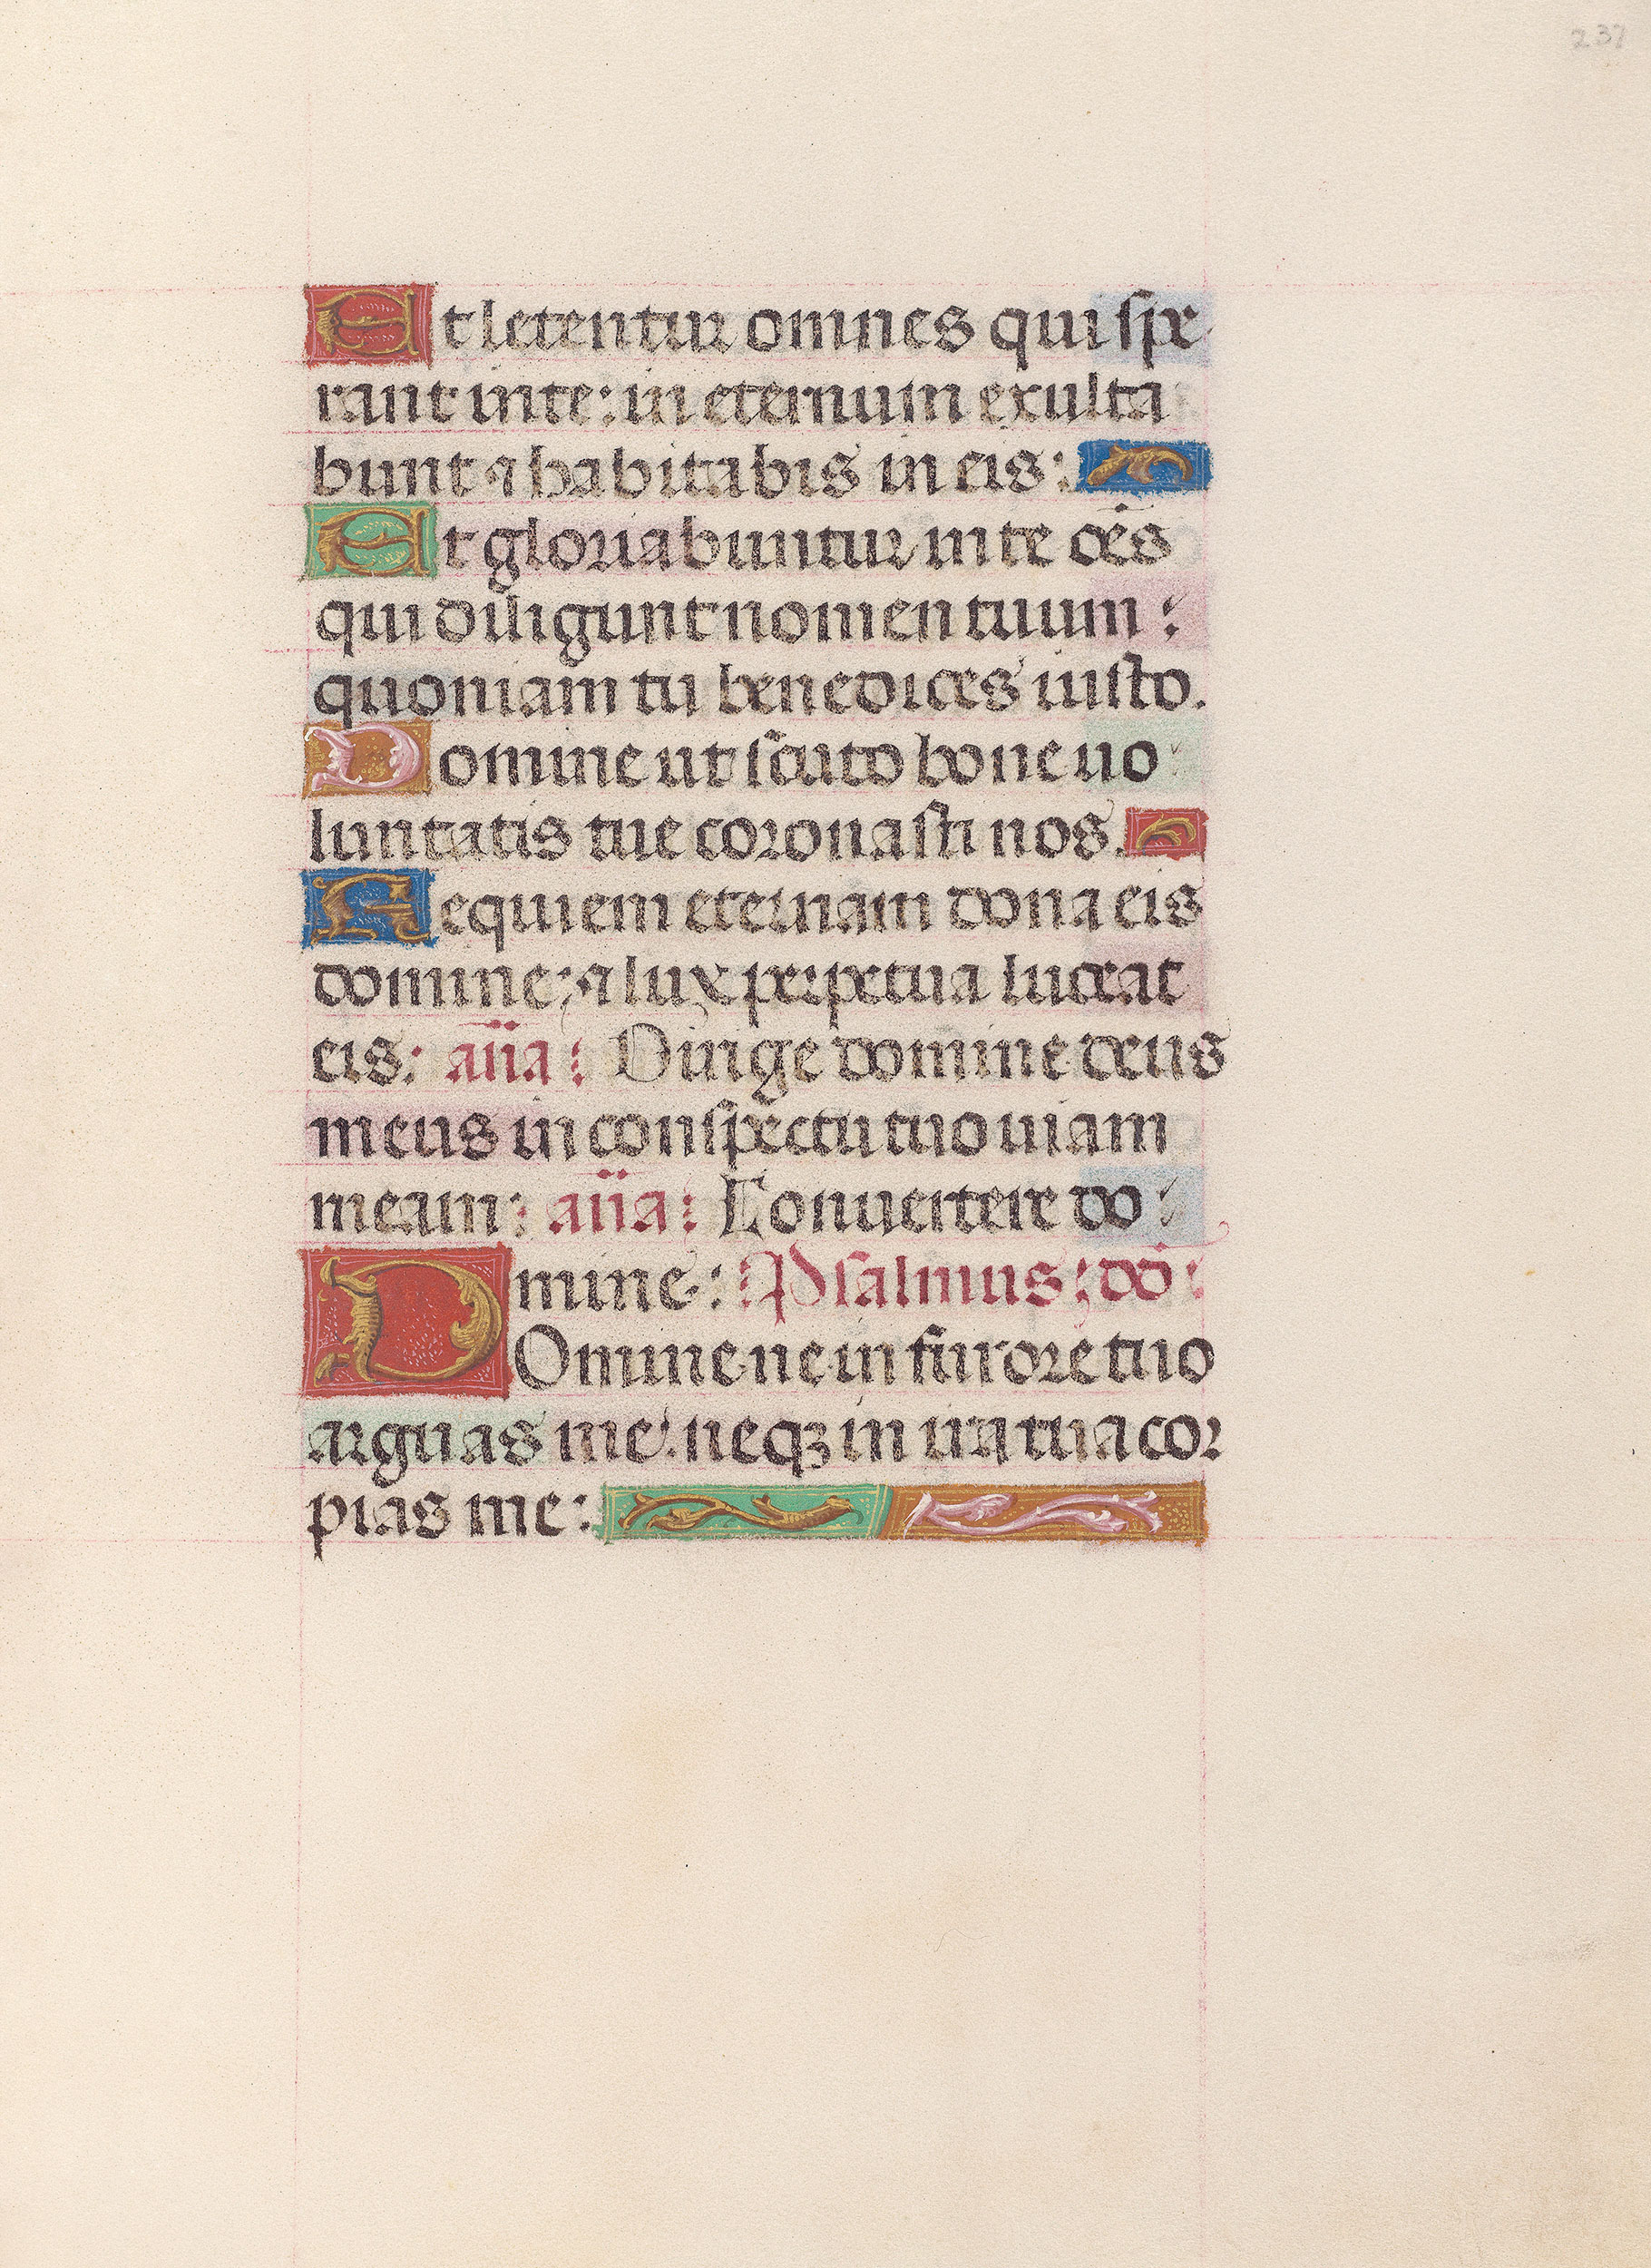 237
Et letentur omnes qui spe
rant in te: in eternum exulta
bunt ⁊ habitabis in eis:
Et gloriabuntur in te oe͂s
qui diligunt nomen tuum:
quoniam tu benedices iusto.
Domine ut scuto bone uo
luntatis tue coronasti nos.
Requiem eternam dona eis
domine: ⁊ lux perpetua luceat
eis: an̄a: Dirige domine deus
meus in conspectu tuo uiam
meam: an̄a: Conuertere do
mine: Psalmus: dd:
Domine ne in furore tuo
arguas me: neqꝫ in ira tua cor
pias me: